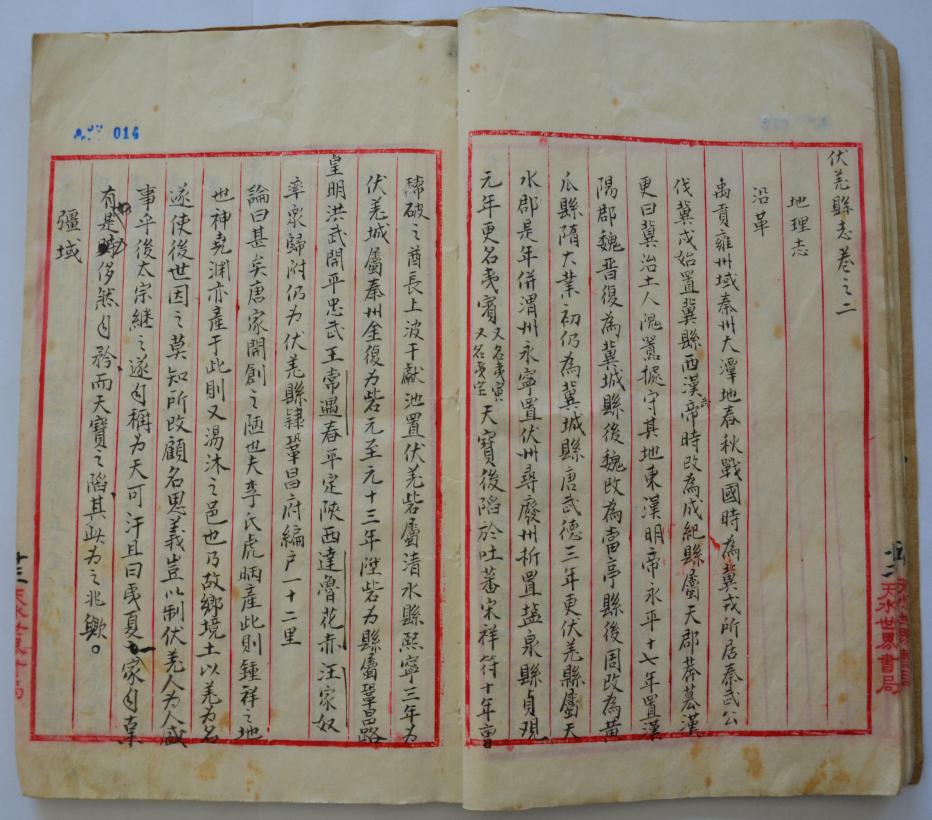 伏羌縣志卷之二
地理志
沿革
禹貢雍州域秦州大潭地春秋戰國時為冀戎所居秦武公
伐冀戎始置冀縣西漢武帝時改為成紀縣屬天郡莽墓漢
更曰冀治土人隗囂據守其地東漢明帝永平十七年置漢
陽郡魏晉復為冀城縣後魏改為當亭縣後周改為黃
瓜縣隋大業初仍為冀城縣唐武德三年更伏羌縣屬天
水郡是年併渭州永寧置伏州尋廢州析置塩泉縣貞观
元年更名夷賓又名夷寅又名夷宝天寶後陷於吐蕃宋祥符十年曹
瑋破之酋長上波于獻池置伏羌砦屬清水縣熙寧三年为
伏羌城屬秦州金復为砦元至元十三年陞砦为縣屬鞏昌路
皇明洪武開平忠武王常遇春平定陝西達魯花赤汪家奴
率衆歸附仍为伏羌縣隸鞏昌府編户一十二里
論曰甚矣唐家開創之陋也夫李氏虎昞產此則鍾祥之地
也神堯渊亦產于此則又湯沐之邑也乃故鄉境土以羌为名
遂使後世因之莫知所改顧名思義豈以制伏羌人为人盛
事乎後太宗継之遂自稱为天可汗且曰夷夏一家自
有是功侈然自矜而天寶之陷其此为之兆歟。
疆域
A 014
天水世界書局